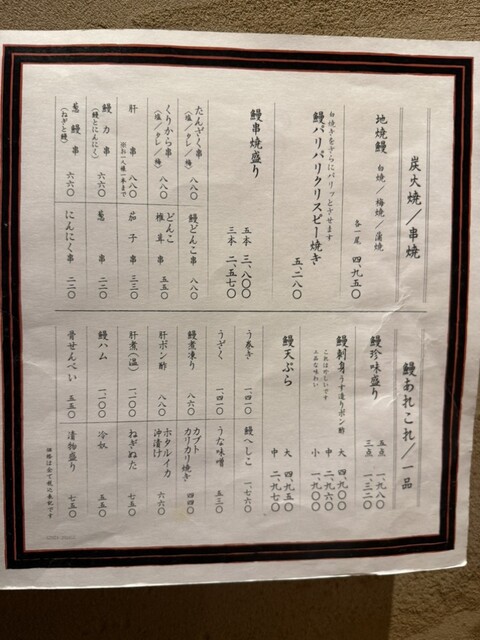 炭火焼／串焼
地焼鰻 白焼／梅焼／蒲焼
各一尾 四、九五〇
白焼きをさらにパリッとさせます
鰻パリパリクリスピー焼き
五、二八〇
鰻串焼盛り
五本 三、八〇〇
三本 二、五七〇
たんざく串 八八〇
（塩／タレ／梅）
鰻どんこ串 八八〇
くりから串 八八〇
（塩／タレ／梅）
どんこ
椎茸串 五五〇
肝串 八八〇
※お一人様一本まで
茄子串 三三〇
鰻力串 六六〇
（鰻とにんにく）
葱串 二二〇
葱鰻串 六六〇
（ねぎと鰻）
にんにく串 二二〇
鰻あれこれ／一品
鰻珍味盛り
五点 一、九八〇
三点 一、三二〇
鰻刺身 うす造りポン酢
これはめずらしいです
上品な味わい
大 四、九〇〇
中 二、九六〇
小 一、九〇〇
鰻天ぷら
大 四、九五〇
中 二、九七〇
う巻き 一、四一〇
鰻へしこ 一、七六〇
うざく 一、四一〇
うな味噌 五三〇
鰻煮凍り 八六〇
カブト
カリカリ焼き 四四〇
肝ポン酢 八八〇
ホタルイカ
沖漬け 六六〇
肝煮（温） 一、一〇〇
ねぎぬた 七五〇
鰻ハム 一、一〇〇
冷奴 五五〇
骨せんべい 五五〇
漬物盛り 七五〇
価格は全て税込表記です